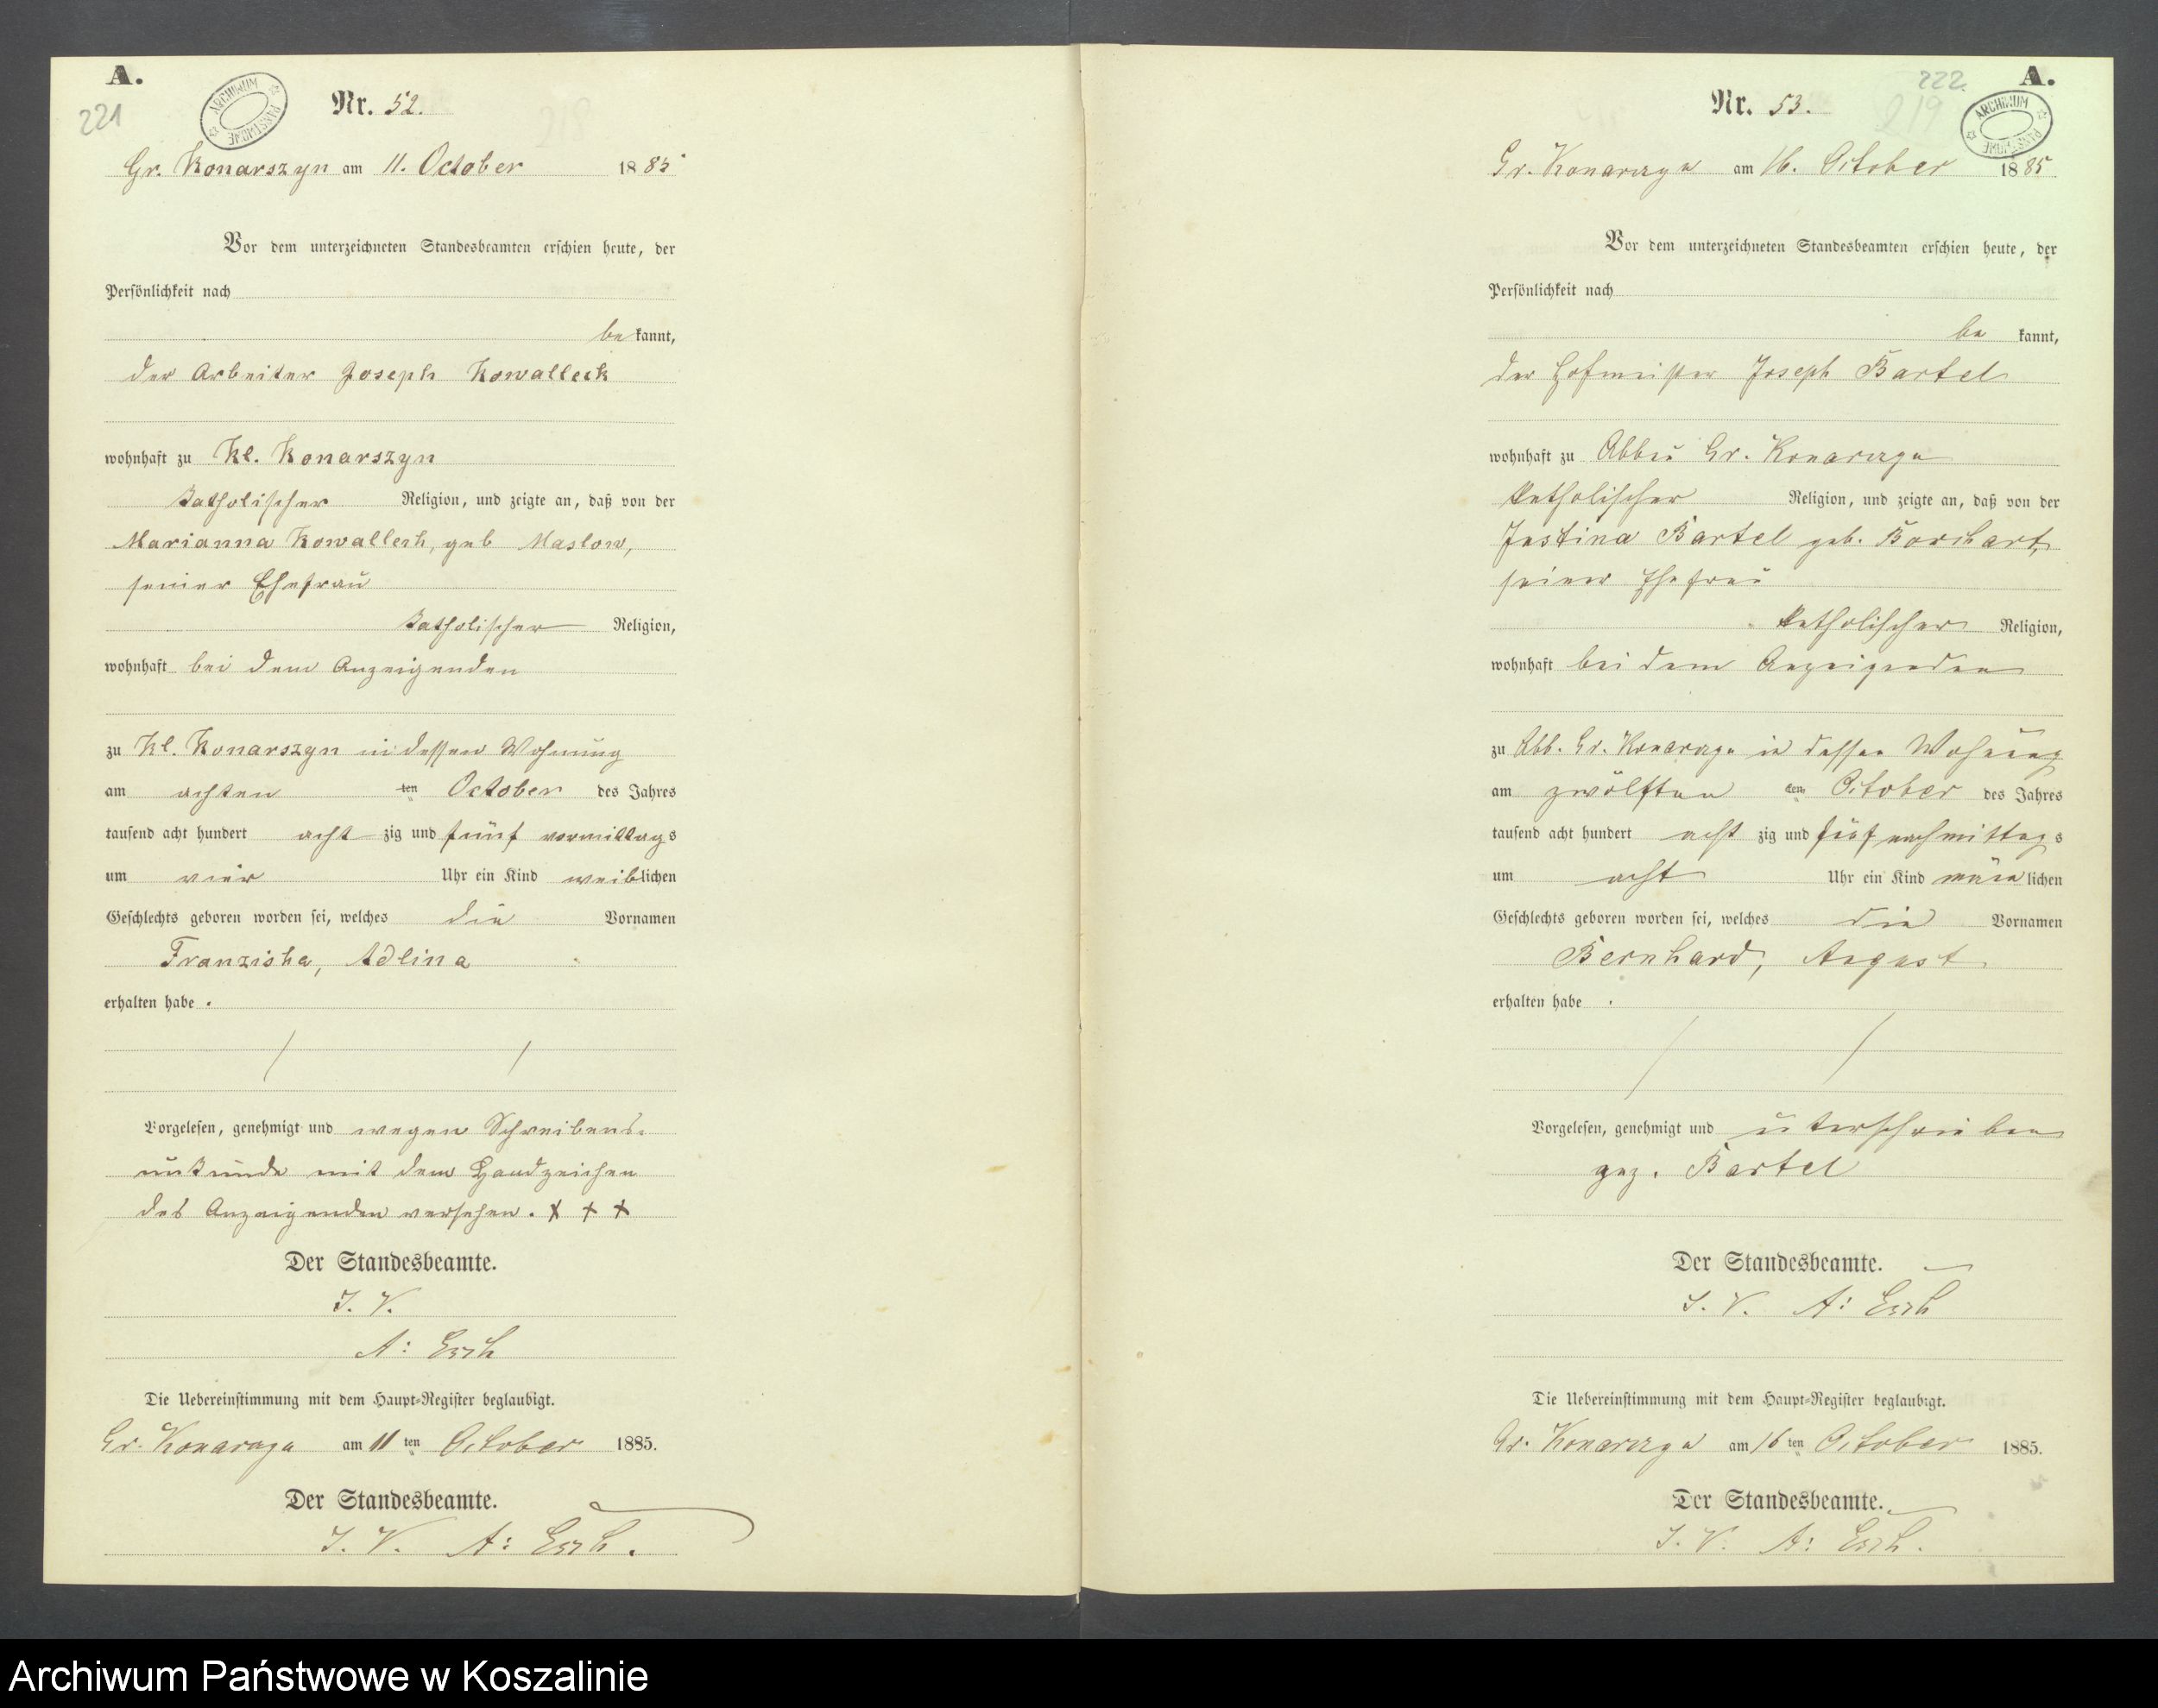 A.
221
ARCHIWUM PAŃSTWOWE
Nr. 52.
Gr. Konarszyn am 11. October 1885
Vor dem unterzeichneten Standesbeamten erschien heute, der
Persönlichkeit nach
bekannt,
der Arbeiter Joseph Kowalleck
wohnhaft zu Kl. Konarszyn
katholischer Religion, und zeigte an, daß von der
Marianna Kowalleck, geb Maslow,
seiner Ehefrau
katholischer Religion,
wohnhaft bei dem Anzeigenden
zu Kl. Konarszyn in dessen Wohnung
am achten ten October des Jahres
tausend acht hundert acht zig und fünf vormittags
um vier Uhr ein Kind weiblichen
Geschlechts geboren worden sei, welches die Vornamen
Franziska, Adlina
erhalten habe.
Vorgelesen, genehmigt und wegen Schreibens-
unkunde mit dem Handzeichen
des Anzeigenden versehen. x x x
Der Standesbeamte.
I. V.
A: Esch
Die Uebereinstimmung mit dem Haupt-Register beglaubigt.
Gr. Konarszyn am 11 ten October 1885.
Der Standesbeamte.
I. V. A: Esch.
222.
219
A.
ARCHIWUM PAŃSTWOWE
Nr. 53.
Gr. Konarszyn am 16. October 1885
Vor dem unterzeichneten Standesbeamten erschien heute, der
Persönlichkeit nach
be kannt,
der Hofmeister Joseph Bartel
wohnhaft zu Abbau Gr. Konarszyn
katholischer Religion, und zeigte an, daß von der
Justina Bartel geb. Borchart,
seiner Ehefrau
katholischer Religion,
wohnhaft bei dem Anzeigenden
zu Abb. Gr. Konarszyn in dessen Wohnung
am zwölften ten October des Jahres
tausend acht hundert acht zig und fünf nachmittags
um acht Uhr ein Kind männlichen
Geschlechts geboren worden sei, welches die Vornamen
Bernhard, August
erhalten habe.
Vorgelesen, genehmigt und unterschrieben
gez. Bartel
Der Standesbeamte.
I. V. A: Esch
Die Uebereinstimmung mit dem Haupt-Register beglaubigt.
Gr. Konarszyn am 16 ten October 1885.
Der Standesbeamte.
I. V. A: Esch.
Archiwum Państwowe w Koszalinie